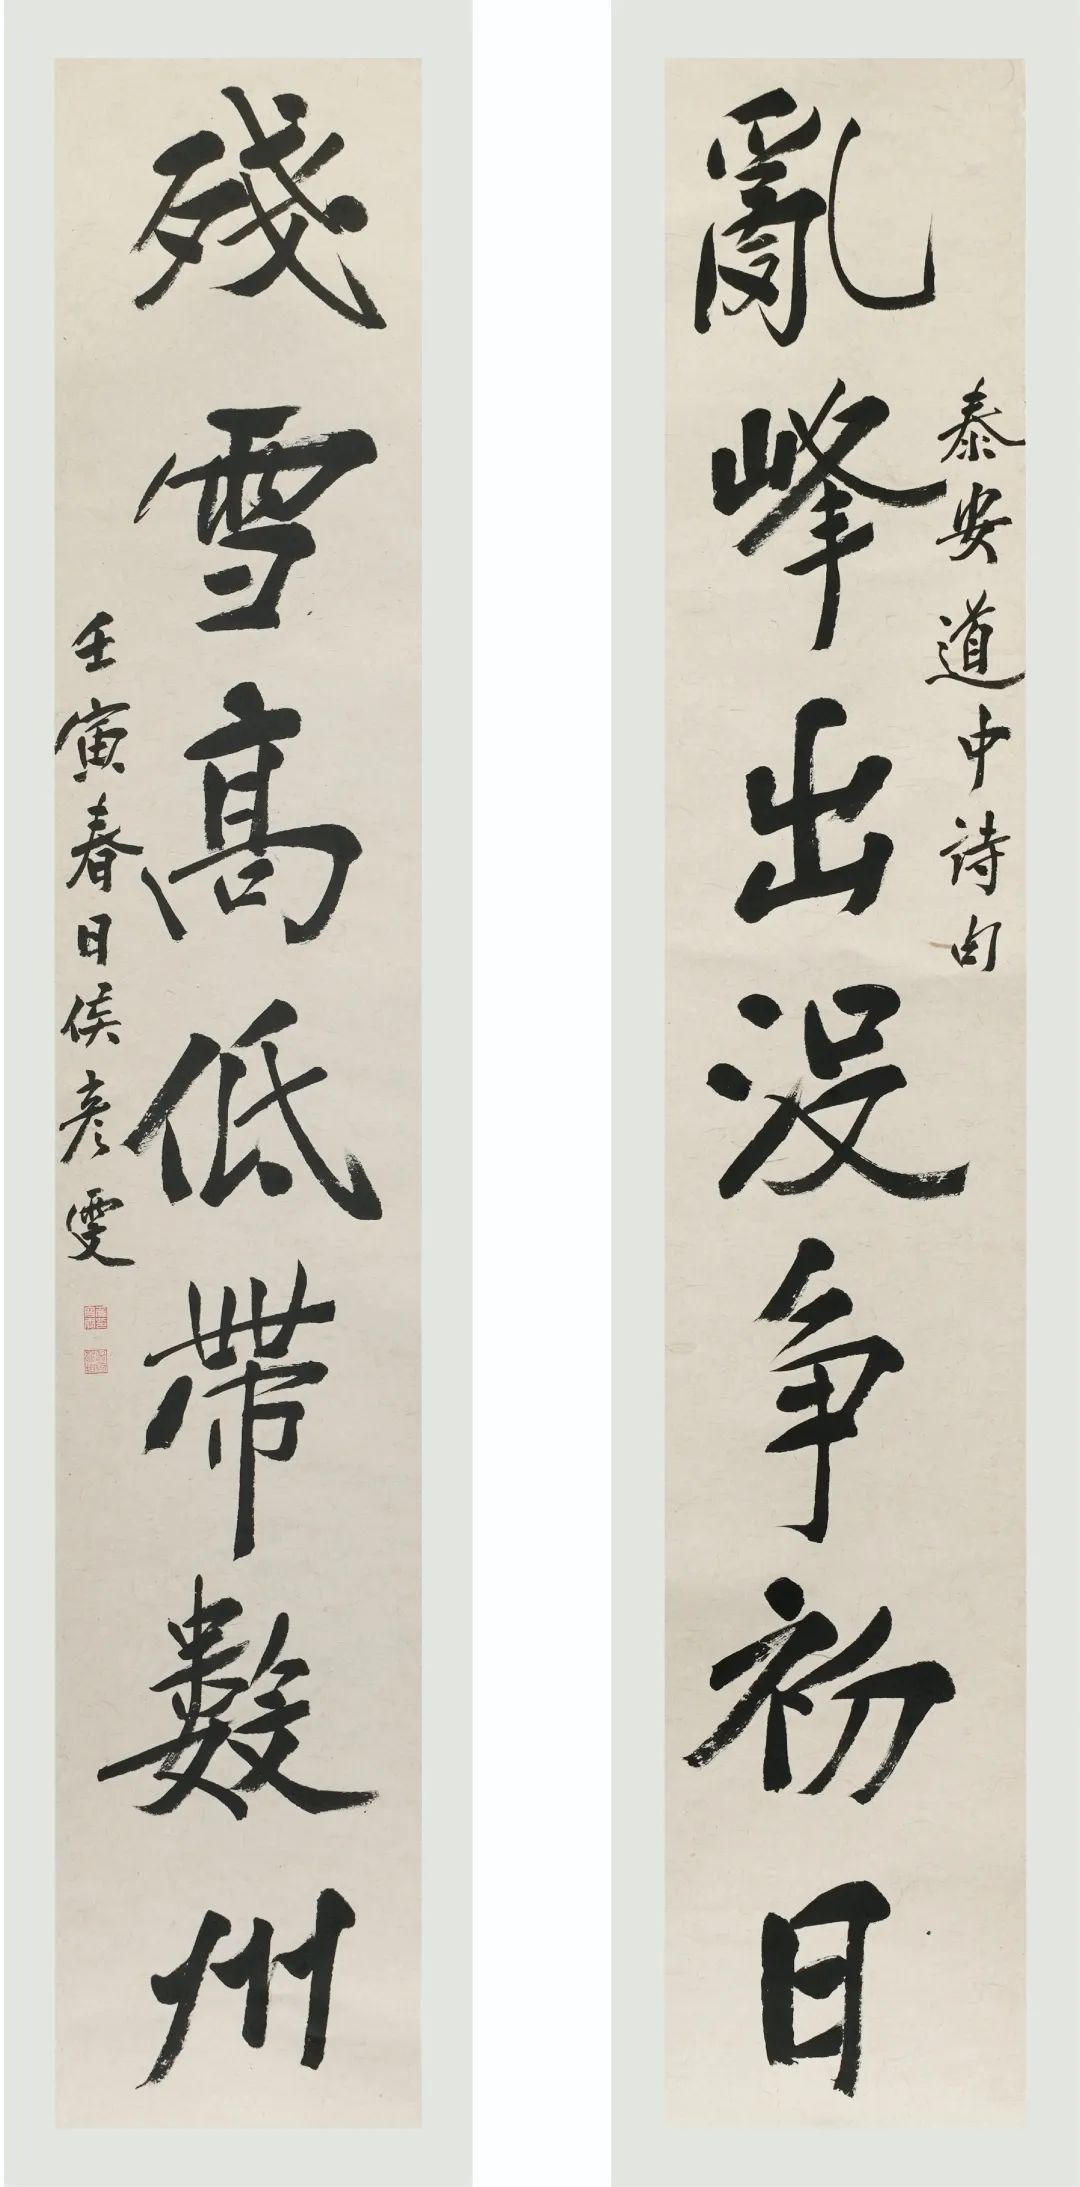 亂峰出没争初日
泰安道中詩句
殘雪高低帶數州
壬寅春日侯彦雯